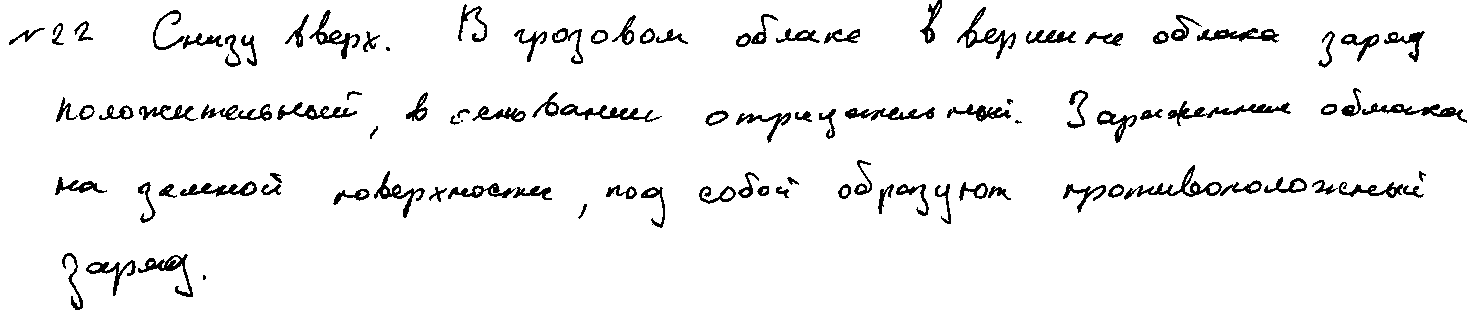 №22 Снизу вверх. В грозовом облаке в вершине облака заряд
положительный, в основании отрицательный. Заряженные облака
на земной поверхности, под собой образуют противоположный
заряд.